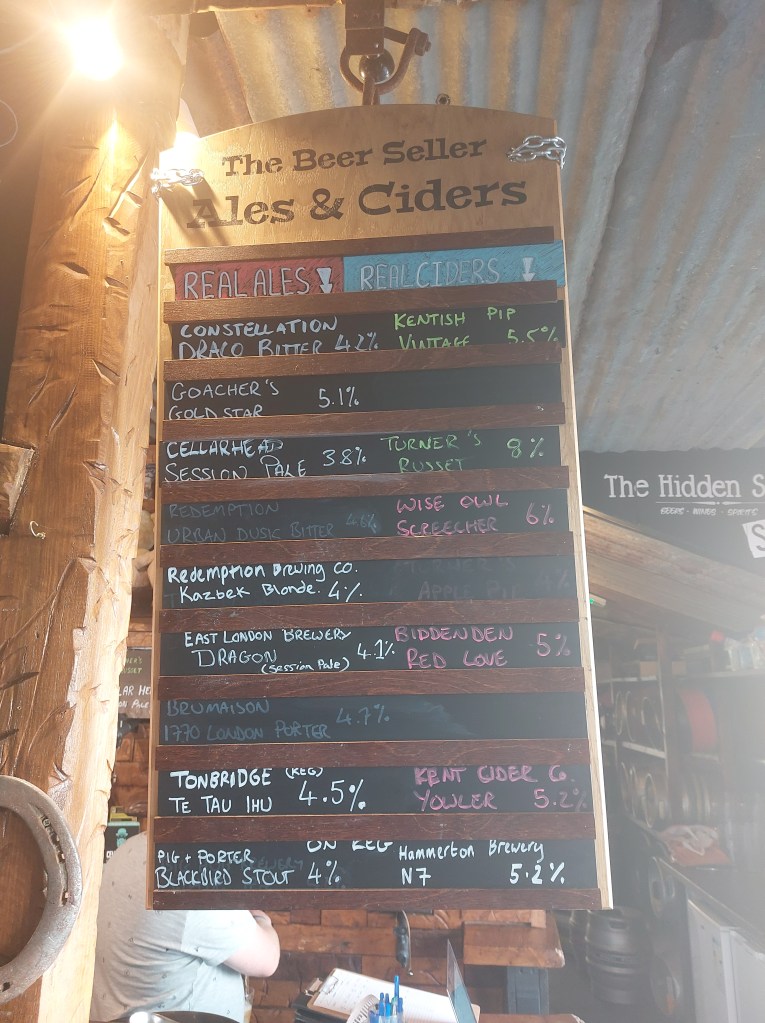 The Beer Seller
Ales & Ciders
REAL ALES
REAL CIDERS
CONSTELLATION
DRACO BITTER 4.2%
KENTISH PIP
VINTAGE 5.5%
GOACHER'S
GOLD STAR 5.1%
CELLARHEAD
SESSION PALE 3.8%
TURNER'S
RUSSET 8%
REDEMPTION
URBAN DUSK BITTER 4.6%
WISE OWL
SCREECHER 6%
Redemption Brewing Co.
Kazbek Blonde. 4%
APPLE PIE
EAST LONDON BREWERY
DRAGON 4.1%
(Session Pale)
BIDDENDEN
RED LOVE 5%
BRUMAISON
1770 LONDON PORTER 4.7%
TONBRIDGE (KEG)
TE TAU IHU 4.5%
KENT CIDER Co.
YOWLER 5.2%
ON KEG
PIG + PORTER
BLACKBIRD STOUT 4%
Hammerton Brewery
N7 5.2%
The Hidden S
BEERS - WINES - SPIRITS
S